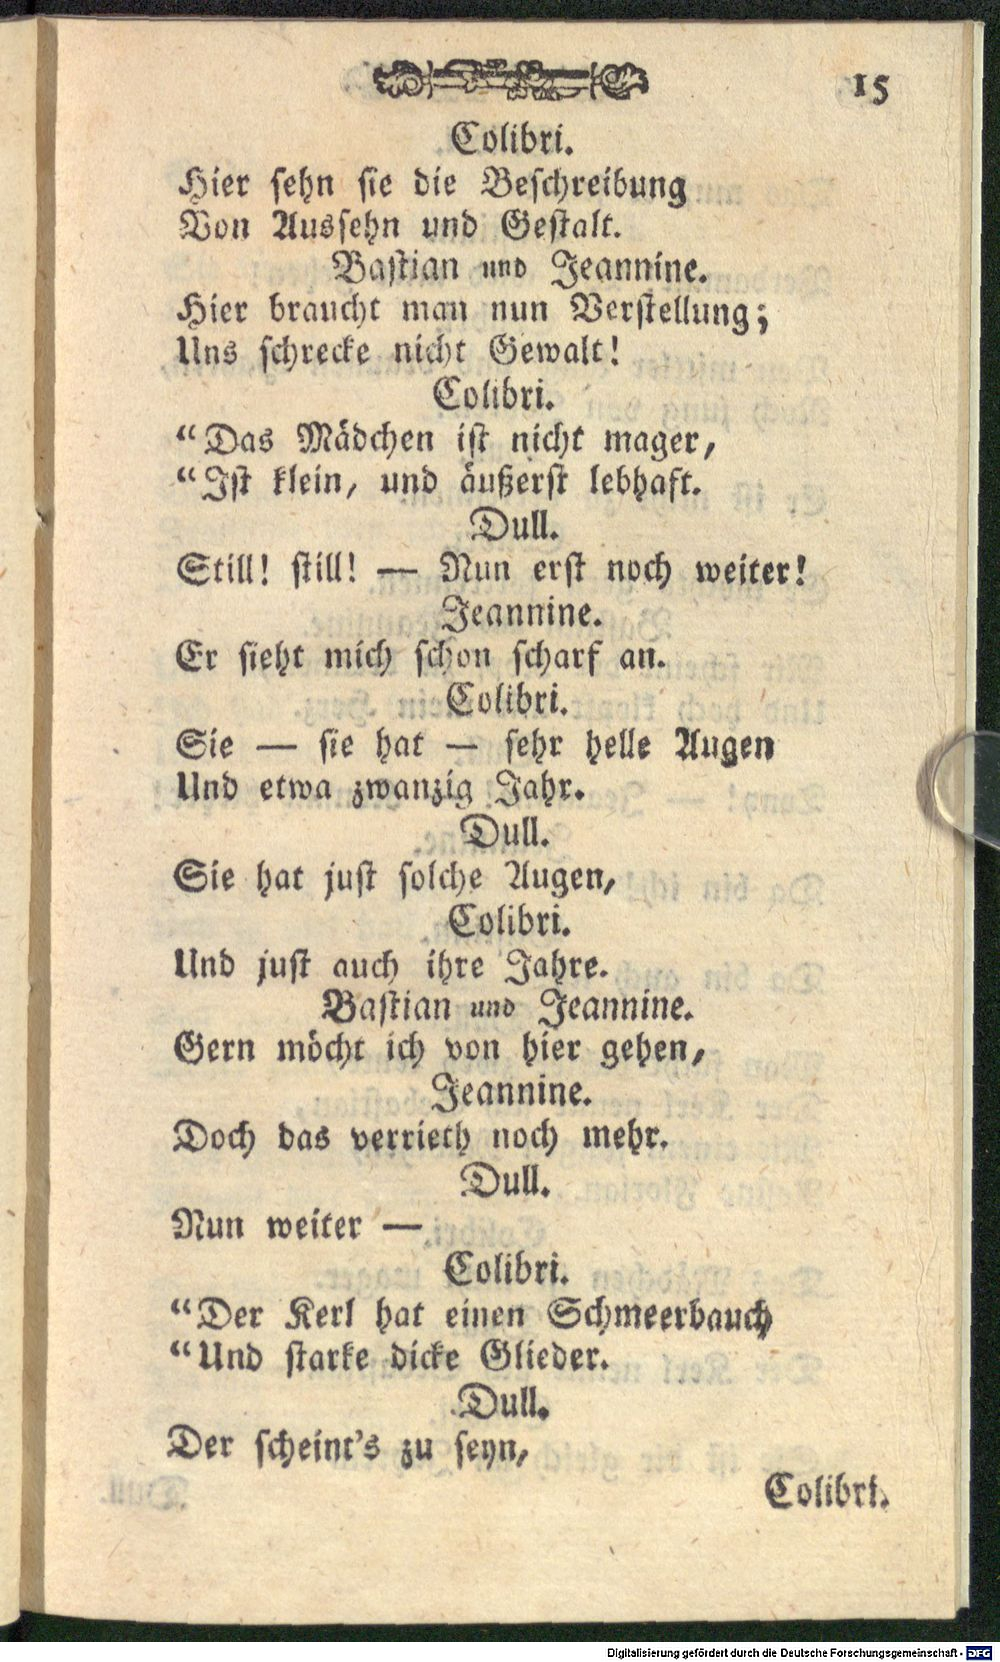 15
Colibri.
Hier sehn sie die Beschreibung
Von Aussehn und Gestalt.
Bastian und Jeannine.
Hier braucht man nun Verstellung;
Uns schrecke nicht Gewalt!
Colibri.
“Das Mädchen ist nicht mager,
“Ist klein, und äußerst lebhaft.
Dull.
Still! still! — Nun erst noch weiter!
Jeannine.
Er sieht mich schon scharf an.
Colibri.
Sie — sie hat — sehr helle Augen
Und etwa zwanzig Jahr.
Dull.
Sie hat just solche Augen,
Colibri.
Und just auch ihre Jahre.
Bastian und Jeannine.
Gern möcht ich von hier gehen,
Jeannine.
Doch das verrieth noch mehr.
Dull.
Nun weiter —
Colibri.
“Der Kerl hat einen Schmeerbauch
“Und starke dicke Glieder.
Dull.
Der scheint's zu seyn,
Colibri.
Digitalisierung gefördert durch die Deutsche Forschungsgemeinschaft - DFG